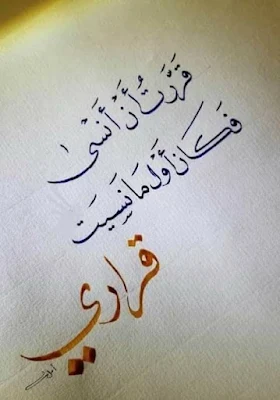 قَرَّرتُ أَنْ أَنسَىٰ
فَكَانَ أَوَّلَ مَا نَسِيَت
قراري